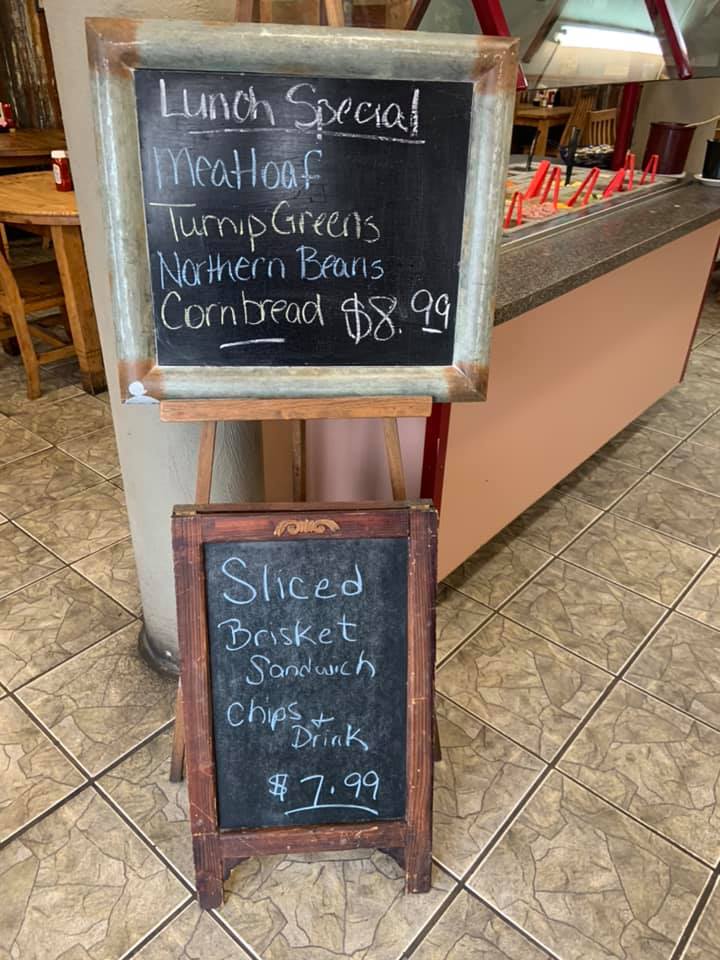 Lunch Special
Meatloaf
Turnip Greens
Northern Beans
Cornbread $8.99
Sliced
Brisket
Sandwich
Chips +
Drink
$7.99